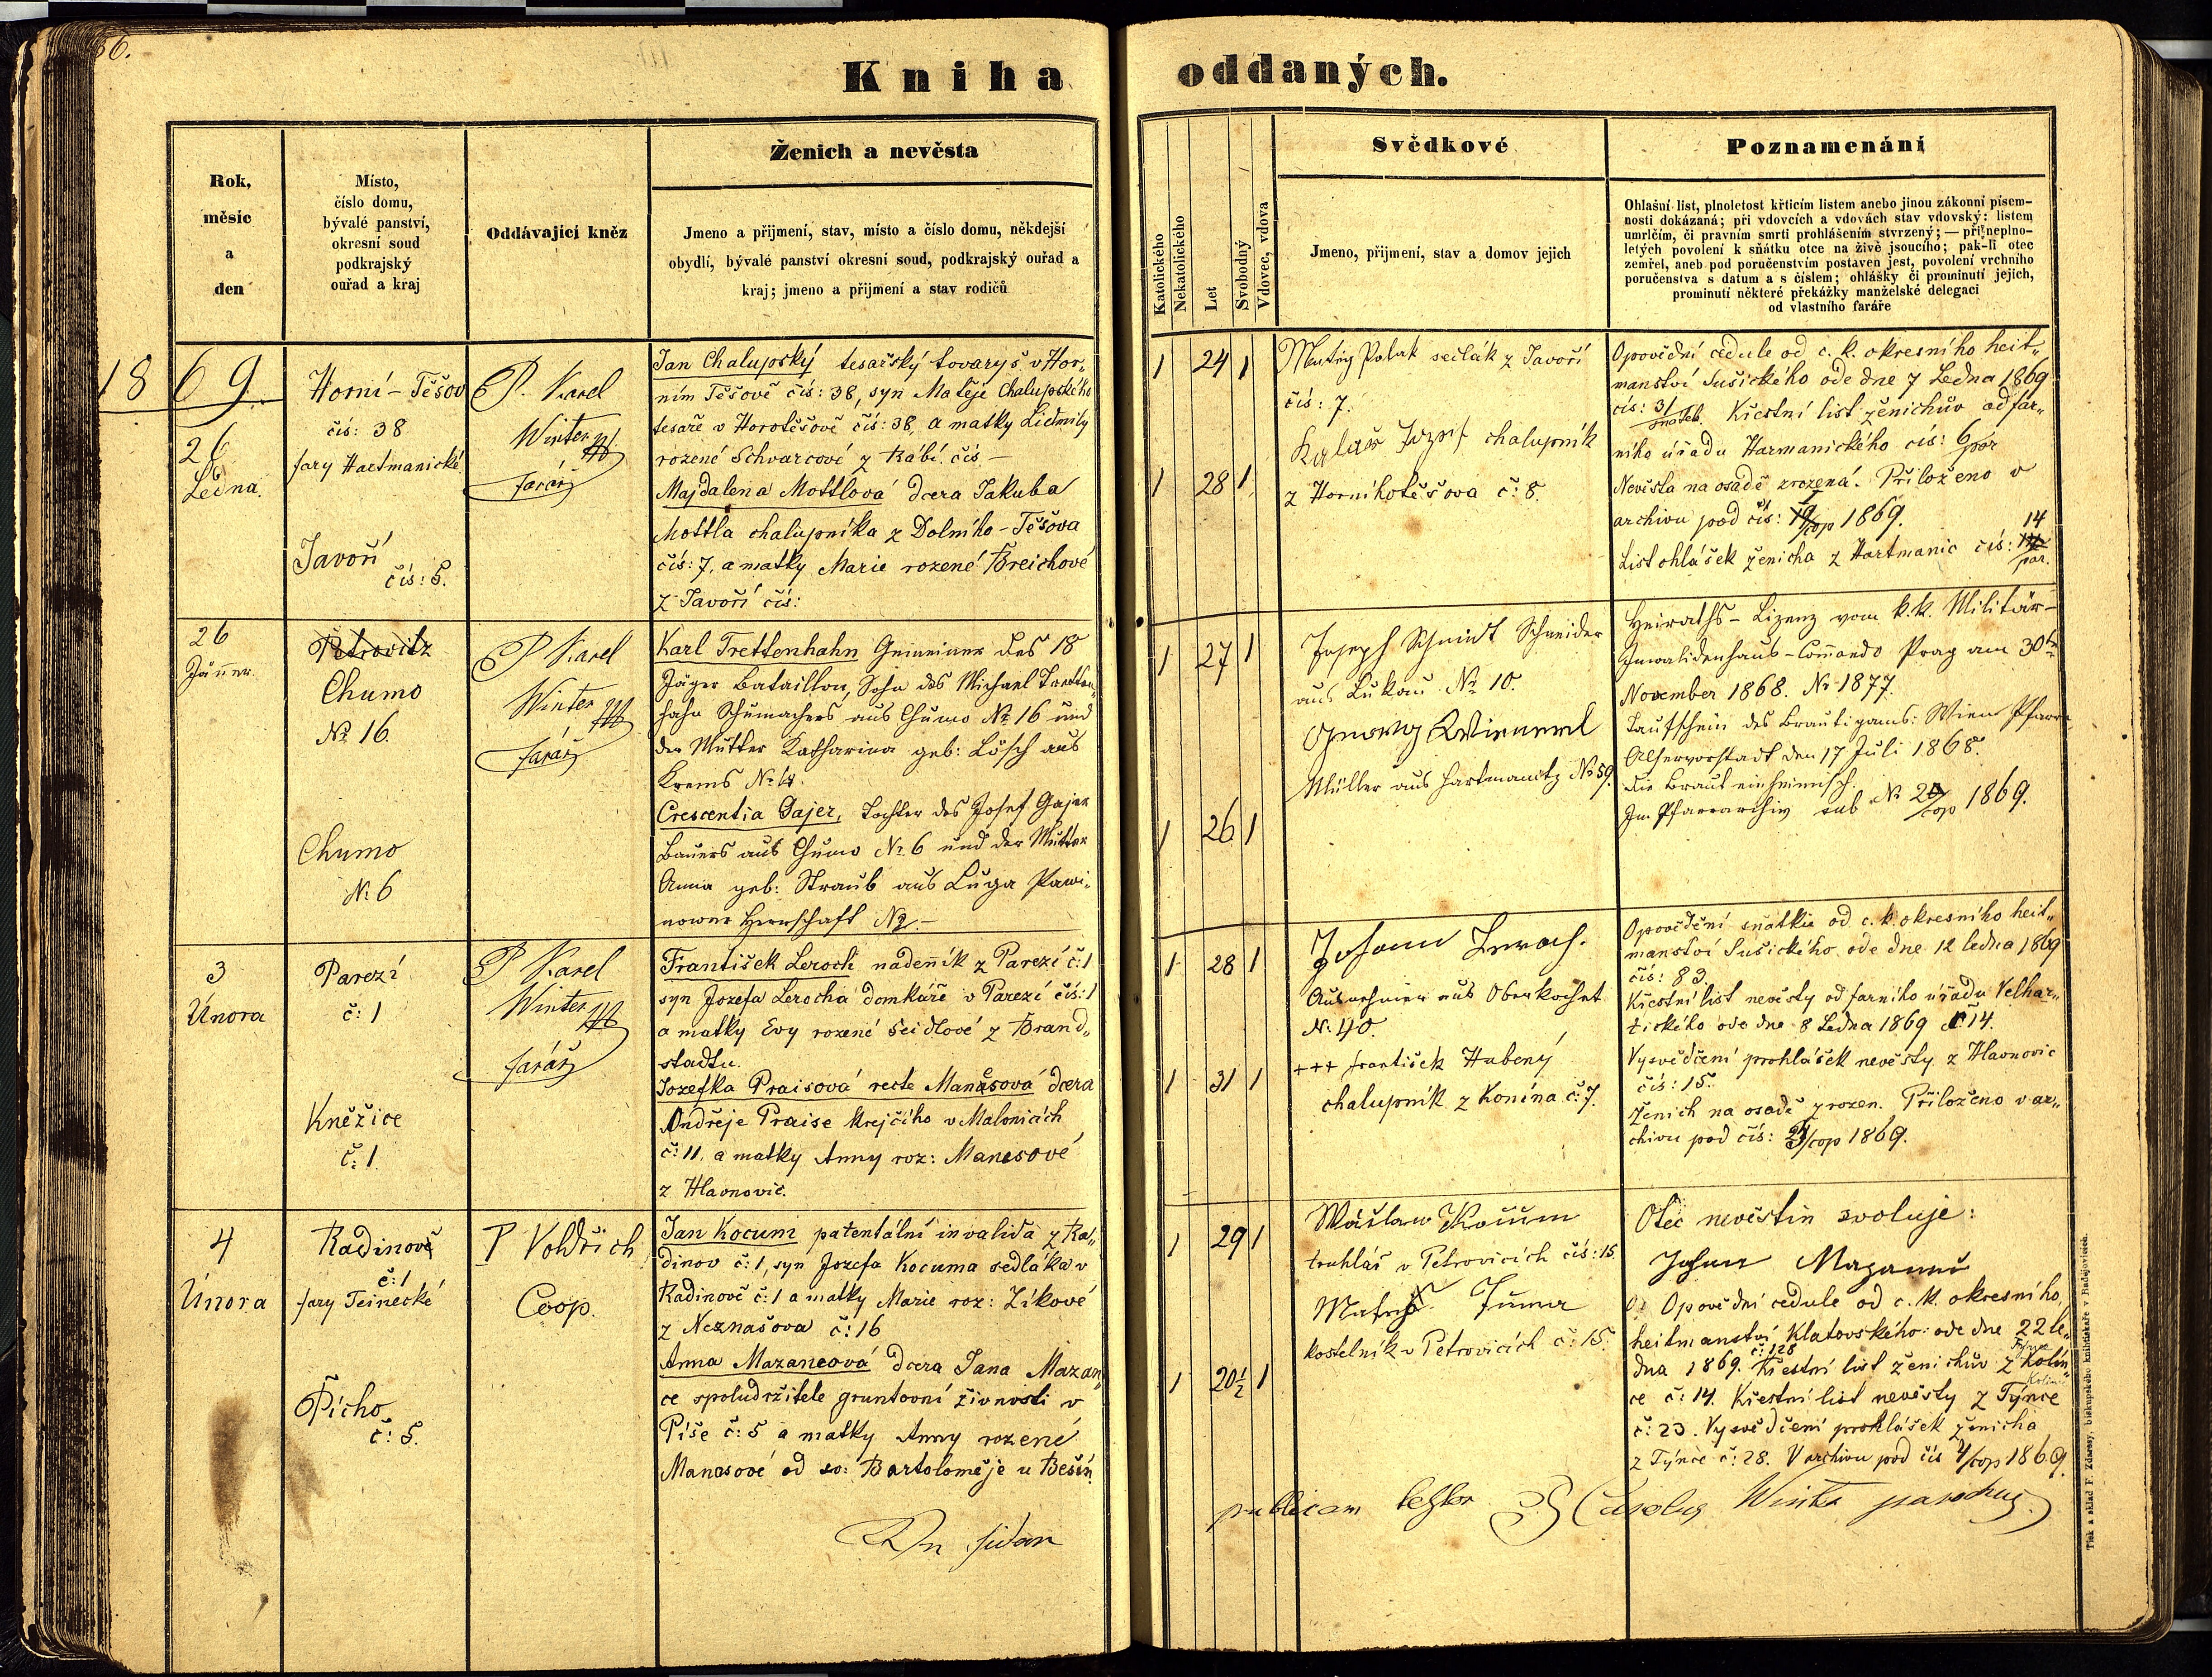 36.
Kniha oddaných.
Rok,
měsíc
a
den
Místo,
číslo domu,
bývalé panství,
okresní soud
podkrajský
ouřad a kraj
Oddávající kněz
Ženich a nevěsta
Jmeno a přijmení, stav, místo a číslo domu, někdejší
obydlí, bývalé panství okresní soud, podkrajský ouřad a
kraj; jmeno a přijmení a stav rodičů
Katolického
Nekatolického
Let
Svobodný
Vdovec, vdova
Svědkové
Jmeno, přijmení, stav a domov jejich
Poznamenání
Ohlašní list, plnoletost křticím listem anebo jinou zákonní písem-
nosti dokázaná; při vdovcích a vdovách stav vdovský: listem
umrlčím, či pravním smrti prohlášením stvrzený; — při neplno-
letých povolení k sňátku otce na živě jsoucího; pak-li otec
zemřel, aneb pod poručenstvím postaven jest, povolení vrchního
poručenstva s datum a s číslem; ohlášky či prominutí jejich,
prominutí některé překážky manželské delegaci
od vlastního faráře
1869.
26
Ledna.
Horní-Těšov
čís: 38
fary Hartmanické
Javoří
čís: 5.
P. Karel
Winter
farář
Jan Chalupský tesařský tovaryš v Hor„
ním Těšově čís: 38, syn Matěje Chalupského
tesaře v Horotěšově čís: 38, a matky Lidmily
rozené Schvarcové z Rábí čís —
Majdalena Mottlová dcera Jakuba
Mottla chalupníka z Dolního-Těšova
čís: 7, a matky Marie rozené Breichové
z Javoří čís:
1 24 1
1 28 1
Matěj Polak sedlák z Javoří
čís: 7.
Kalaš Jozef chalupník
z Horníhotěšova č: 8.
Opovědní cedule od c. k. okresního heit„
manství Sušického ode dne 7 Ledna 1869
čís: 31 Křestní list ženichův od far„
ního úřadu Harmanického čís: 6
Nevěsta na osadě zrozená. Přiloženo v
archivu pod čís: 1/cop 1869.
List ohlášek ženicha z Hartmanic čís: 14
par.
26
Jänner.
Petrovitz
Chumo
No 16.
Chumo
No 6
P Karel
Winter
farář
Karl Trettenhahn Gemeiner des 18
Jäger Bataillon, Sohn des Michael Tretten„
hahn Schumachers aus Chumo No 16 und
der Mutter Katharina geb: Lösch aus
Krems No 4.
Crescentia Gajer, Tochter des Josef Gajer
Bauers aus Chumo No 6 und der Mutter
Anna geb: Straub aus Luga Pawi„
nower Herrschaft No —
1 27 1
1 26 1
Joseph Schmidt Schneider
aus Lukau No 10.
Georg
Müller aus Hartmanitz No 59.
Heiraths-Lizenz vom k.k. Militär-
Invalidenhaus-Commando Prag am 30ten
November 1868. No 1877.
Taufschein des Bräutigams: Wien Pfarre
Alservorstadt den 17 Juli 1868.
Die Braut einheimisch.
Im Pfarrarchiv sub No 2/cop 1869.
3
Února
Parezí
č: 1
Kněžice
č: 1.
P Karel
Winter
farář
František Leroch nadenník z Parezí č: 1
syn Jozefa Lerocha domkáře v Parezí čís: 1
a matky Evy rozené Seidlové z Brand„
stadtu.
Jozefka Praisová recte Manäsová dcera
Ondřeje Praise krejčího v Malonicích
č: 11, a matky Anny roz: Manesové
z Hlavnovic.
1 28 1
1 31 1
Johann Leroch.
Ausnehmer aus Oberkochet
No 40.
+++ František Hubený
chalupník z Konína č: 7.
Opovědění sňatku od c. k. okresního heit„
manství Sušického ode dne 12 ledna 1869
čís: 83.
Křestní list nevěsty od farního úřadu Velhar„
tického ode dne 8 Ledna 1869 č 14.
Vysvědčení prohlášek nevěsty z Hlavnovic
čís: 15.
Ženich na osadě zrozen. Přiloženo v ar„
chivu pod čís: 3/cop 1869.
4
Února
Radinově
č: 1
fary Teinecké
Pícho
č: 5.
P Voldřich
Coop.
Jan Kocum patentální invalida z Ra„
dinov č: 1, syn Jozefa Kocuma sedláka v
Radinově č: 1 a matky Marie roz: Zíkové
z Neznašova č: 16
Anna Mazancová dcera Jana Mazan„
ce spoludržitele gruntovní živnosti v
Píše č: 5 a matky Anny rozené
Manosové od sv: Bartoloměje u Bešín
1 29 1
1 20½ 1
Wáclaw Kocum
truhlář v Petrovicích čís: 15.
Matěj Tuma
kostelník v Petrovicích č: 15.
Otec nevěstin svoluje:
Johann Mazanec
Opovědní cedule od c. k. okresního
heitmanství Klatovského ode dne 22 le„
č: 128
dna 1869. Křestní list ženichův z Kolín„
ce č: 14. Křestní list nevěsty z Týnce
č: 23. Vysvědčení prohlášek ženicha
z Týnce č: 28. V archivu pod čís 4/cop 1869.
publicam testor P Carolus Winter parochus.
Tisk a sklad F. Zdarssy, biskupského knihtiskaře v Budějovicích.